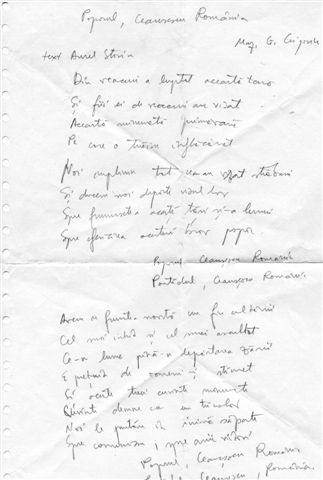 Poporul, Ceaușescu România
Muz. G.
text Aurel Storin
Din veacuri a luptat această țară
Și fiii ei de veacuri au visat
Această minunată primăvară
Pe care o trăim
Noi împlinim tot ce au visat străbunii
Și ducem mai departe visul lor
Spre frumusețea acestei țări și-a lumii
Spre apărarea acestui brav popor
Poporul Ceaușescu România
Partidul, Ceaușescu România
Avem în frunte nostru un fiu al țării
Cel mai iubit și cel mai ascultat
Ce-n lume până-n depărtarea zării
E prețuit de oameni și stimat
Și aceste trei cuvinte minunate
Cuvinte demne ca un tricolor
Noi le purtăm în inimă săpate
Spre comunism, spre anii viitori
Poporul, Ceaușescu România
Ceaușescu, România